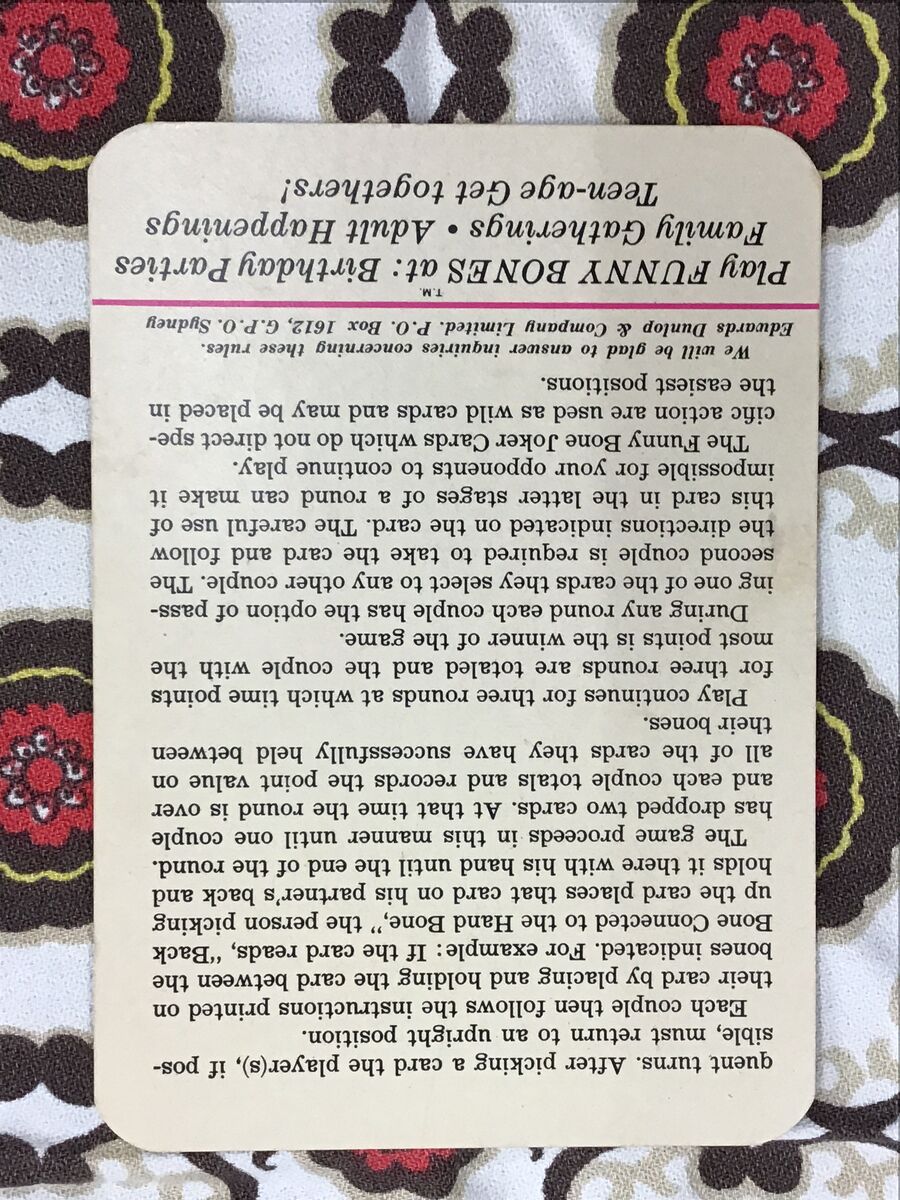 quent turns. After picking a card the player(s), if pos-
sible, must return to an upright position.
Each couple then follows the instructions printed on
their card by placing and holding the card between the
bones indicated. For example: If the card reads, "Back
Bone Connected to the Hand Bone," the person picking
up the card places that card on his partner's back and
holds it there with his hand until the end of the round.
The game proceeds in this manner until one couple
has dropped two cards. At that time the round is over
and each couple totals and records the point value on
all of the cards they have successfully held between
their bones.
Play continues for three rounds at which time points
for three rounds are totaled and the couple with the
most points is the winner of the game.
During any round each couple has the option of pass-
ing one of the cards they select to any other couple. The
second couple is required to take the card and follow
the directions indicated on the card. The careful use of
this card in the latter stages of a round can make it
impossible for your opponents to continue play.
The Funny Bone Joker Cards which do not direct spe-
cific action are used as wild cards and may be placed in
the easiest positions.
We will be glad to answer inquiries concerning these rules.
Edwards Dunlop & Company Limited. P.O. Box 1612, G.P.O. Sydney
Play FUNNY BONES T.M. at: Birthday Parties
Family Gatherings • Adult Happenings
Teen-age Get togethers!